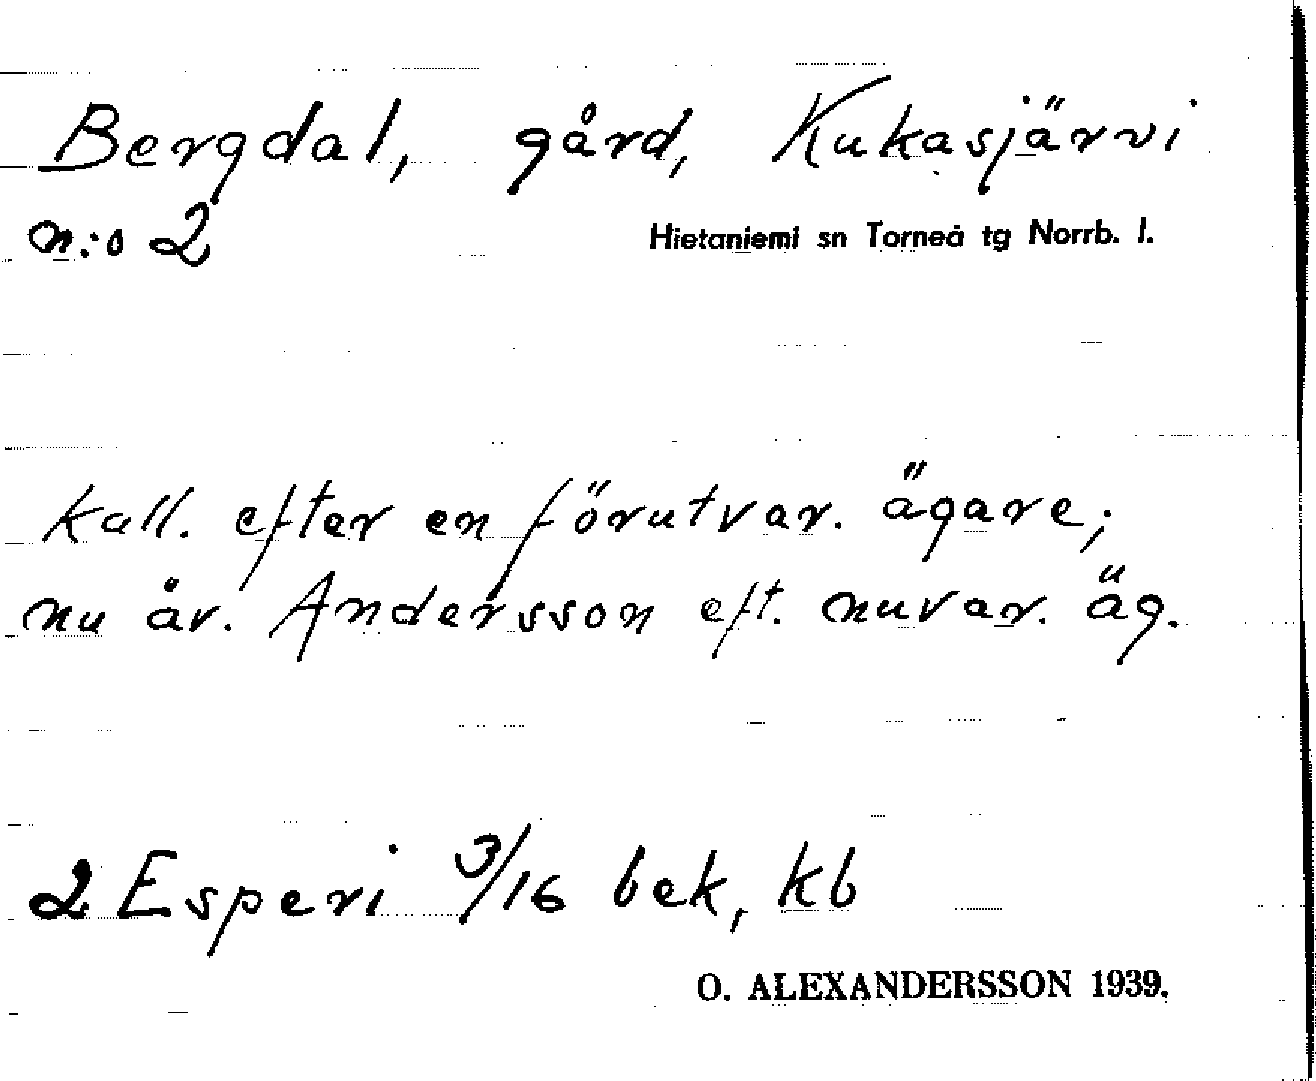 Bergdal, gård, Kukasjärvi
n:o 2
Hietaniemi sn Torneå tg Norrb. l.
Kall. efter en förutvar. ägare;
nu äv. Andersson eft. nuvar. äg.
2 Esperi 3/16 bek, kb
O. ALEXANDERSSON 1939.